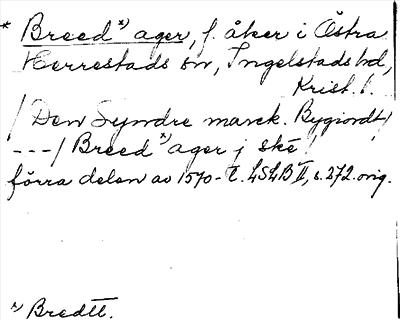 * Breed *) ager, f. åker i Östra
Herrestads sn, Ingelstads hd,
Krist. l.
/ Den Syndre marck. Bygiordt /
---/ Breed *) ager j ske /
förra delen av 1570-t. LSLB II, s. 272. orig.
*) Bredtt.